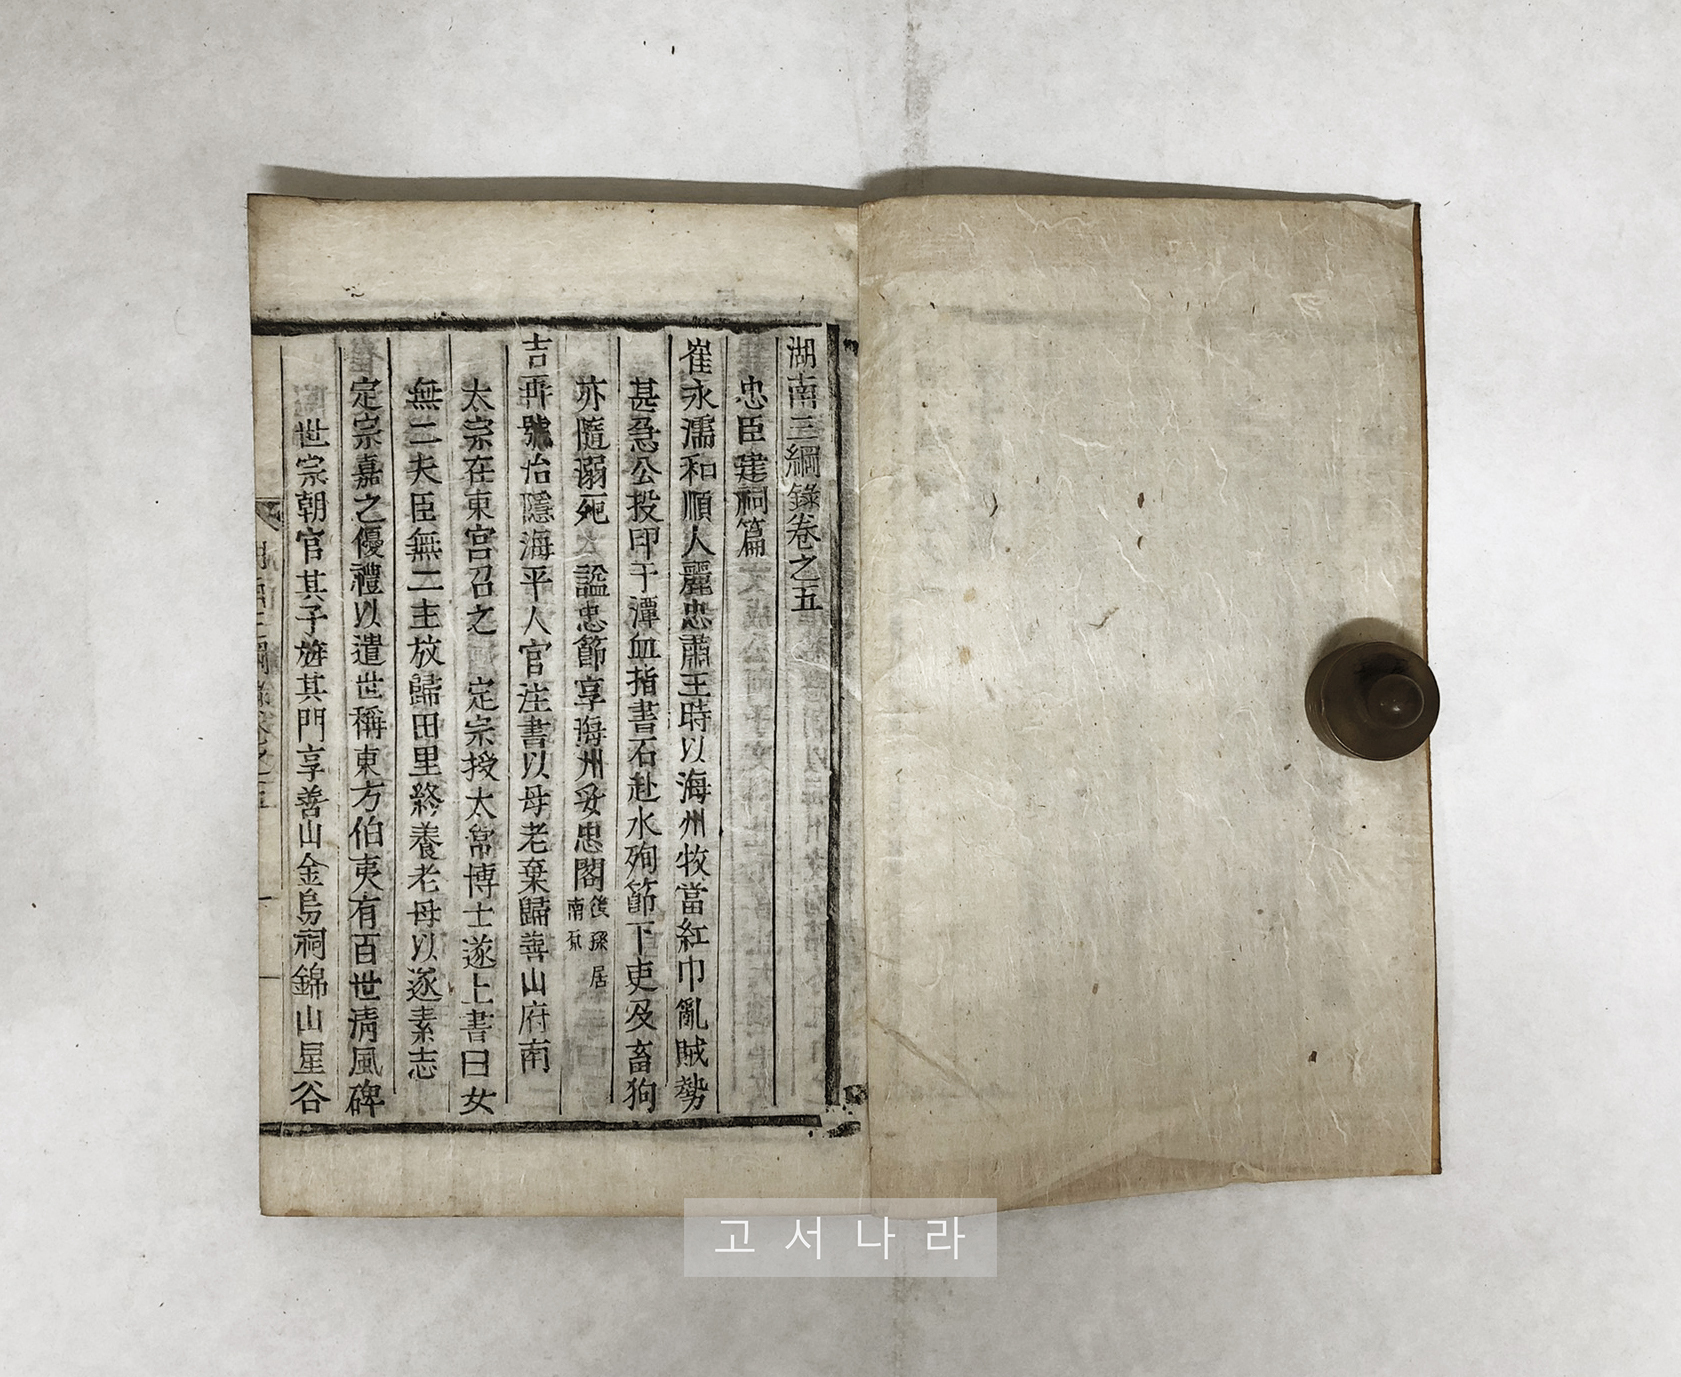 湖南三綱錄卷之五
忠臣建祠篇
崔永濡和順人麗忠肅王時以海州牧當紅巾亂賊勢
甚急公投印于潭血指書石赴水殉節下吏及畜狗
亦隨溺死 謚忠節享海州妥忠閣後孫居南原
吉再號冶隱海平人官注書以母老棄歸善山府南
太宗在東宮召之 定宗授太常博士遂上書曰女
無二夫臣無二主放歸田里終養老母以遂素志
定宗嘉之優禮以遣世稱東方伯夷有百世淸風碑
世宗朝官其子旌其門享善山金烏祠錦山星谷
고서나라